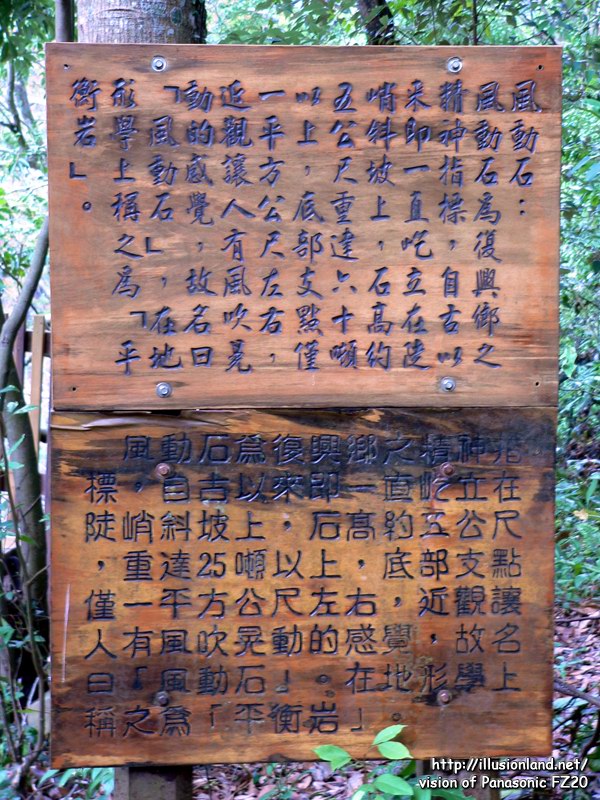 風動石：
風動石為復興鄉之
精神指標，自古以
来即一直吃立在陡
峭斜坡上，石高約
五公尺重達六十噸
以上，底部支點僅
一平方公尺左右，
近觀讓人有風吹晃
動的感覺，故名曰
「風動石」，在地
形學上稱之為「平
衡岩」。
風動石爲復興鄉之精神指
標，自古以來即一直屹立在
陡峭斜坡上，石高約五公尺
，重達25噸以上，底部支點
僅一平方公尺左右，近觀讓
人有風吹晃動的感覺，故名
曰「風動石」。在地形學上
稱之爲「平衡岩」。
http://illusionland.net/
vision of Panasonic FZ20